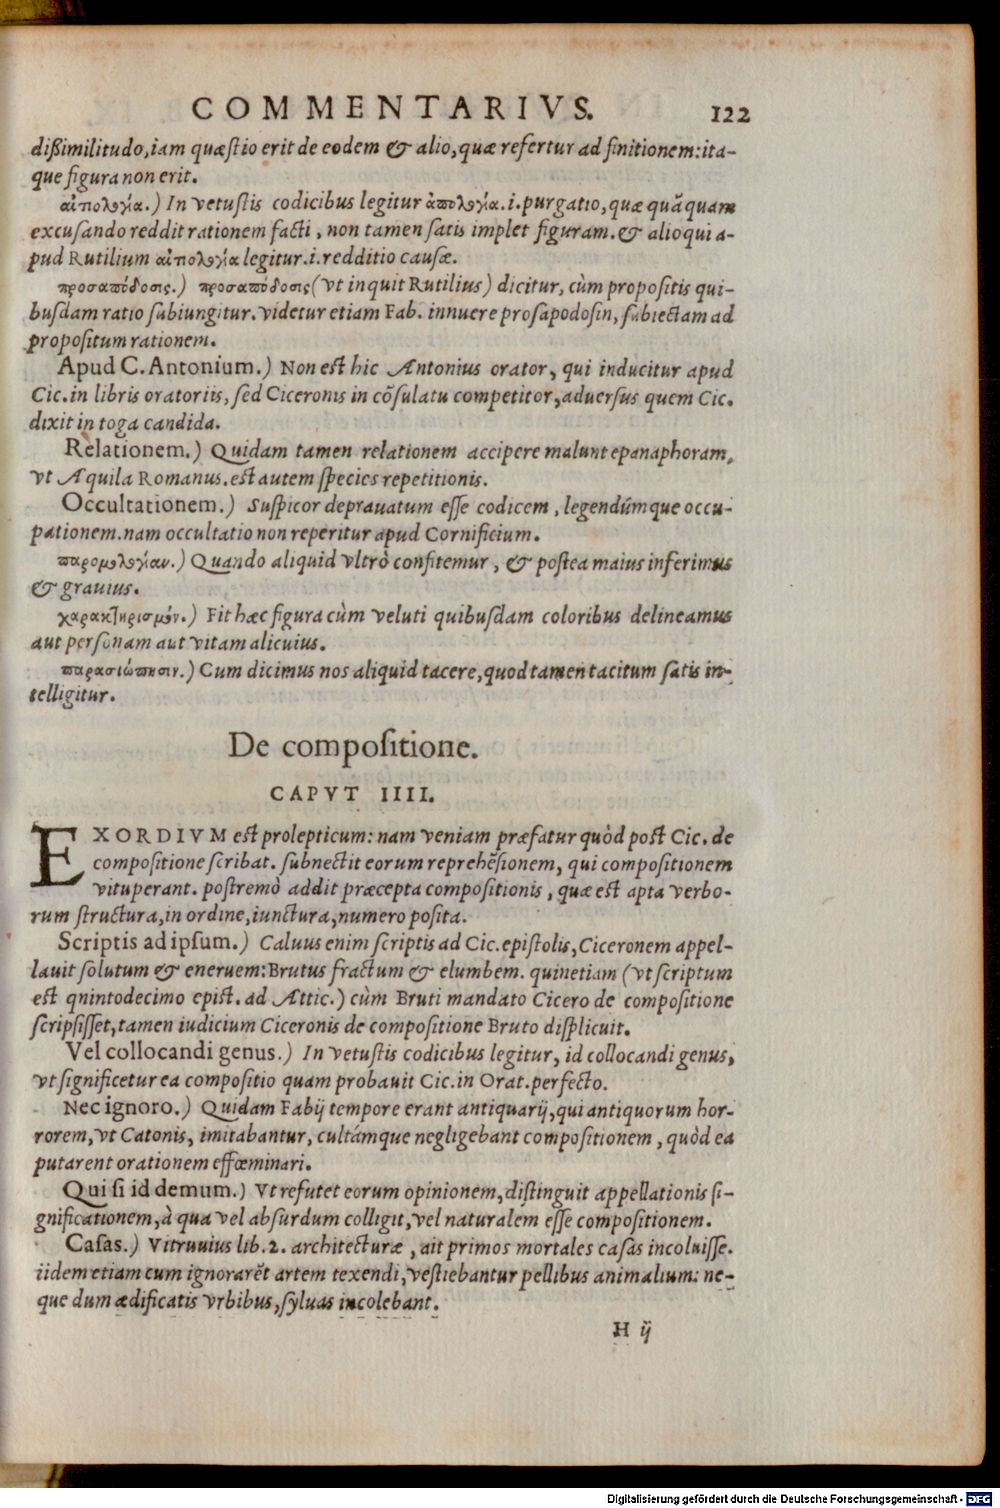 COMMENTARIVS. 122
dißimilitudo, iam quæstio erit de eodem & alio, quæ refertur ad finitionem: ita-
que figura non erit.
αἰτιολογία.) In vetustis codicibus legitur ἀπολογία. i. purgatio, quæ quãquam
excusando reddit rationem facti, non tamen satis implet figuram. & alioqui a-
pud Rutilium αἰτιολογία legitur. i. redditio causæ.
προσαπόδοσις.) προσαπόδοσις (vt inquit Rutilius) dicitur, cùm propositis qui-
busdam ratio subiungitur. videtur etiam Fab. innuere prosapodosin, subiectam ad
propositum rationem.
Apud C. Antonium.) Non est hic Antonius orator, qui inducitur apud
Cic. in libris oratoriis, sed Ciceronis in cõsulatu competitor, aduersus quem Cic.
dixit in toga candida.
Relationem.) Quidam tamen relationem accipere malunt epanaphoram,
vt Aquila Romanus. est autem species repetitionis.
Occultationem.) Suspicor deprauatum esse codicem, legendúmque occu-
pationem. nam occultatio non reperitur apud Cornificium.
παρομολογίαν.) Quando aliquid vltrò confitemur, & postea maius inferimus
& grauius.
χαρακτηρισμόν.) Fit hæc figura cùm veluti quibusdam coloribus delineamus
aut personam aut vitam alicuius.
παρασιώπησιν.) Cum dicimus nos aliquid tacere, quod tamen tacitum satis in-
telligitur.
De compositione.
CAPVT IIII.
EXORDIVM est prolepticum: nam veniam præfatur quòd post Cic. de
compositione scribat. subnectit eorum reprehẽsionem, qui compositionem
vituperant. postremò addit præcepta compositionis, quæ est apta verbo-
rum structura, in ordine, iunctura, numero posita.
Scriptis ad ipsum.) Caluus enim scriptis ad Cic. epistolis, Ciceronem appel-
lauit solutum & eneruem: Brutus fractum & elumbem. quinetiam (vt scriptum
est qnintodecimo epist. ad Attic.) cùm Bruti mandato Cicero de compositione
scripsisset, tamen iudicium Ciceronis de compositione Bruto displicuit.
Vel collocandi genus.) In vetustis codicibus legitur, id collocandi genus,
vt significetur ea compositio quam probauit Cic. in Orat. perfecto.
Nec ignoro.) Quidam Fabij tempore erant antiquarij, qui antiquorum hor-
rorem, vt Catonis, imitabantur, cultámque negligebant compositionem, quòd ea
putarent orationem effœminari.
Qui si id demum.) Vt refutet eorum opinionem, distinguit appellationis si-
gnificationem, à qua vel absurdum colligit, vel naturalem esse compositionem.
Casas.) Vitruuius lib. 2. architecturæ, ait primos mortales casas incoluisse.
iidem etiam cum ignorarẽt artem texendi, vestiebantur pellibus animalium: ne-
que dum ædificatis vrbibus, syluas incolebant.
H ij
Digitalisierung gefördert durch die Deutsche Forschungsgemeinschaft - DFG